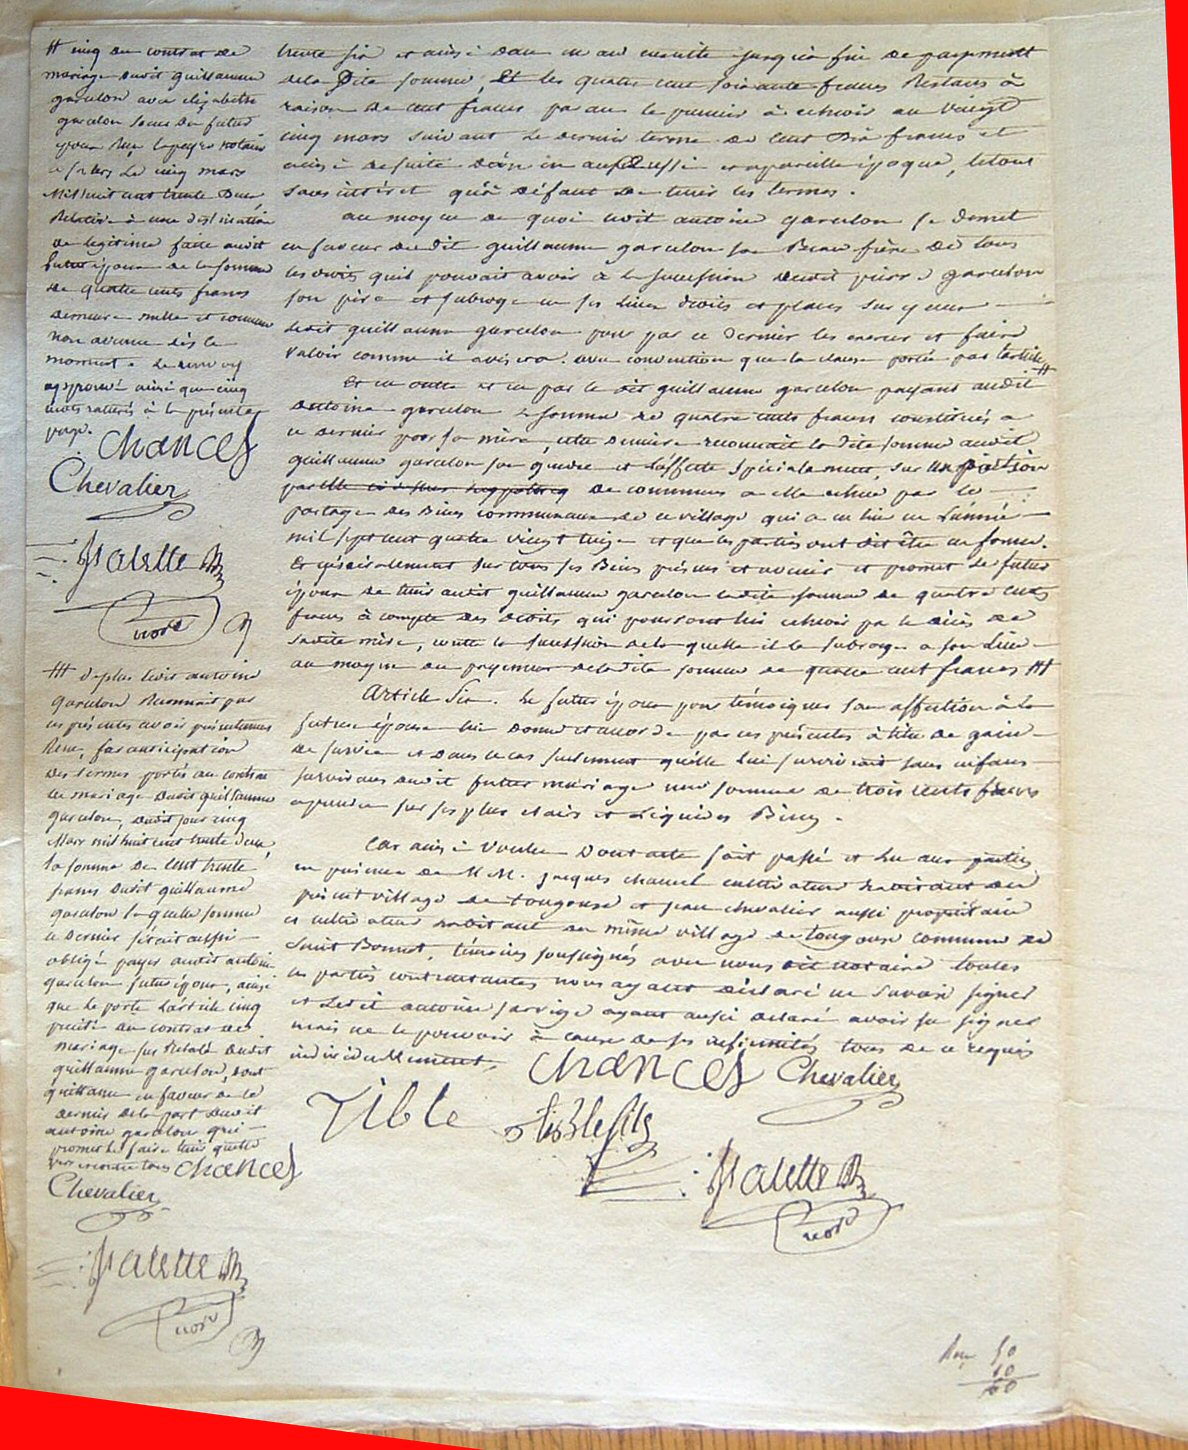 trente six et ainsi dan en an ensuite jusqu'à fin de payement
de la dite somme, Et les quatre cent soixante francs Restans à
raison de cent francs par an le premier à echoir au vingt
cinq mars suivant le dernier terme de cent dix francs et
ainsi desuite d'an en an aussi et apareille époque, letout
sans intéret qu'à défaut de tenir les termes.
au moyen de quoi ledit antoine garculon se demet
en faveur dudit guillaume garculon son Beau frère de tous
les droits quil pouvait avoir a la succession dudit pierre garculon
son père et subroge en ses lieux droits et places sur yceux
ledit guillaume garculon pour par ce dernier les exercer et faire
valoir comme il avisera. avec convention que la clause portée par l'article #
Et en outre et en par le dit guillaume garculon payant audit
antoine garculon la somme de quatre cents francs constitués a
ce dernier par sa mère, cette dernière reconnait la dite somme audit
guillaume garculon son gendre et l'affecte spécialement sur
de communes a elle echue par le
partage des Biens communaux de ce village qui a eu lieu en l'année
mil sept cent quatre vingt treize et que les parties ont dit être en forme.
Et généralement sur tous ses Biens présens et avenir et promet le futur
époux de tenir audit guillaume garculon ladite somme de quatre cents
francs à compte des droits qui pourront lui echoir par le décès de
sadite mère, contre la succession de la quelle il le subroge a son lieu
au moyen du payement de la dite somme de quatre cent francs ##
Article Six. Le futur époux pour témoigner son affection à la
future épouse lui donne et accorde par ces présentes à titre de gain
de survie et dans le cas seulement quelle lui survivrait sans enfans
survivans dudit futur mariage une somme de trois cents francs
aprendre sur ses plus clairs et liquides Biens.
Car ainsi voulu Dont acte fait passé et lu aux parties
en présence de M.M. jacques chancel cultivateur habitant du
présent village de tougouse et jean chevalier aussi propriétaire
et cultivateur habitant du même village de tougouse commune de
Saint Bonnet, témoins soussignés avec nous dit notaire toutes
les parties contractantes nous ayant déclaré ne savoir signer
et ledit antoine ayant aussi déclaré avoir su signer
mais ne le pouvoir à cause de ses infirmités tous de ce requis
individuellement.
Chancel Chevalier
Tible
Tible fils
Palette
not.re
# cinq du contrat de
mariage dudit guillaume
garculon avec elizabethe
garculon soeur du futur
époux Reçu notaire
le cinq mars
Mil huit cent trente Deux,
Relative à une destination
de legitime faite audit
futur époux de la somme
de quatre cents francs
demeure nulle et comme
non avenue dès le
moment. Le renvoy
approuvé ainsi que cinq
mots raturés à la présente
page. Chancel
Chevalier
Palette
not.re
## deplus ledit antoine
garculon Reconnait par
ces présentes avoir présentement
Reçu, par anticipation
des termes portés au contrat
de mariage dudit guillaume
garculon, dudit jour cinq
Mars mil huit cent trente deux,
la somme de cent trente
francs dudit guillaume
garculon la quelle somme
ce dernier s'était aussi
obligé payer audit antoine
garculon futur époux, ainsi
que le porte l'article cinq
précité au contrat de
mariage sus Relaté dudit
guillaume garculon, dont
quittance en faveur de ce
dernier de la part dudit
antoine garculon qui
promet le faire tenir quitte
vers et contre tous Chancel
Chevalier
Palette
not.re
50
10
60